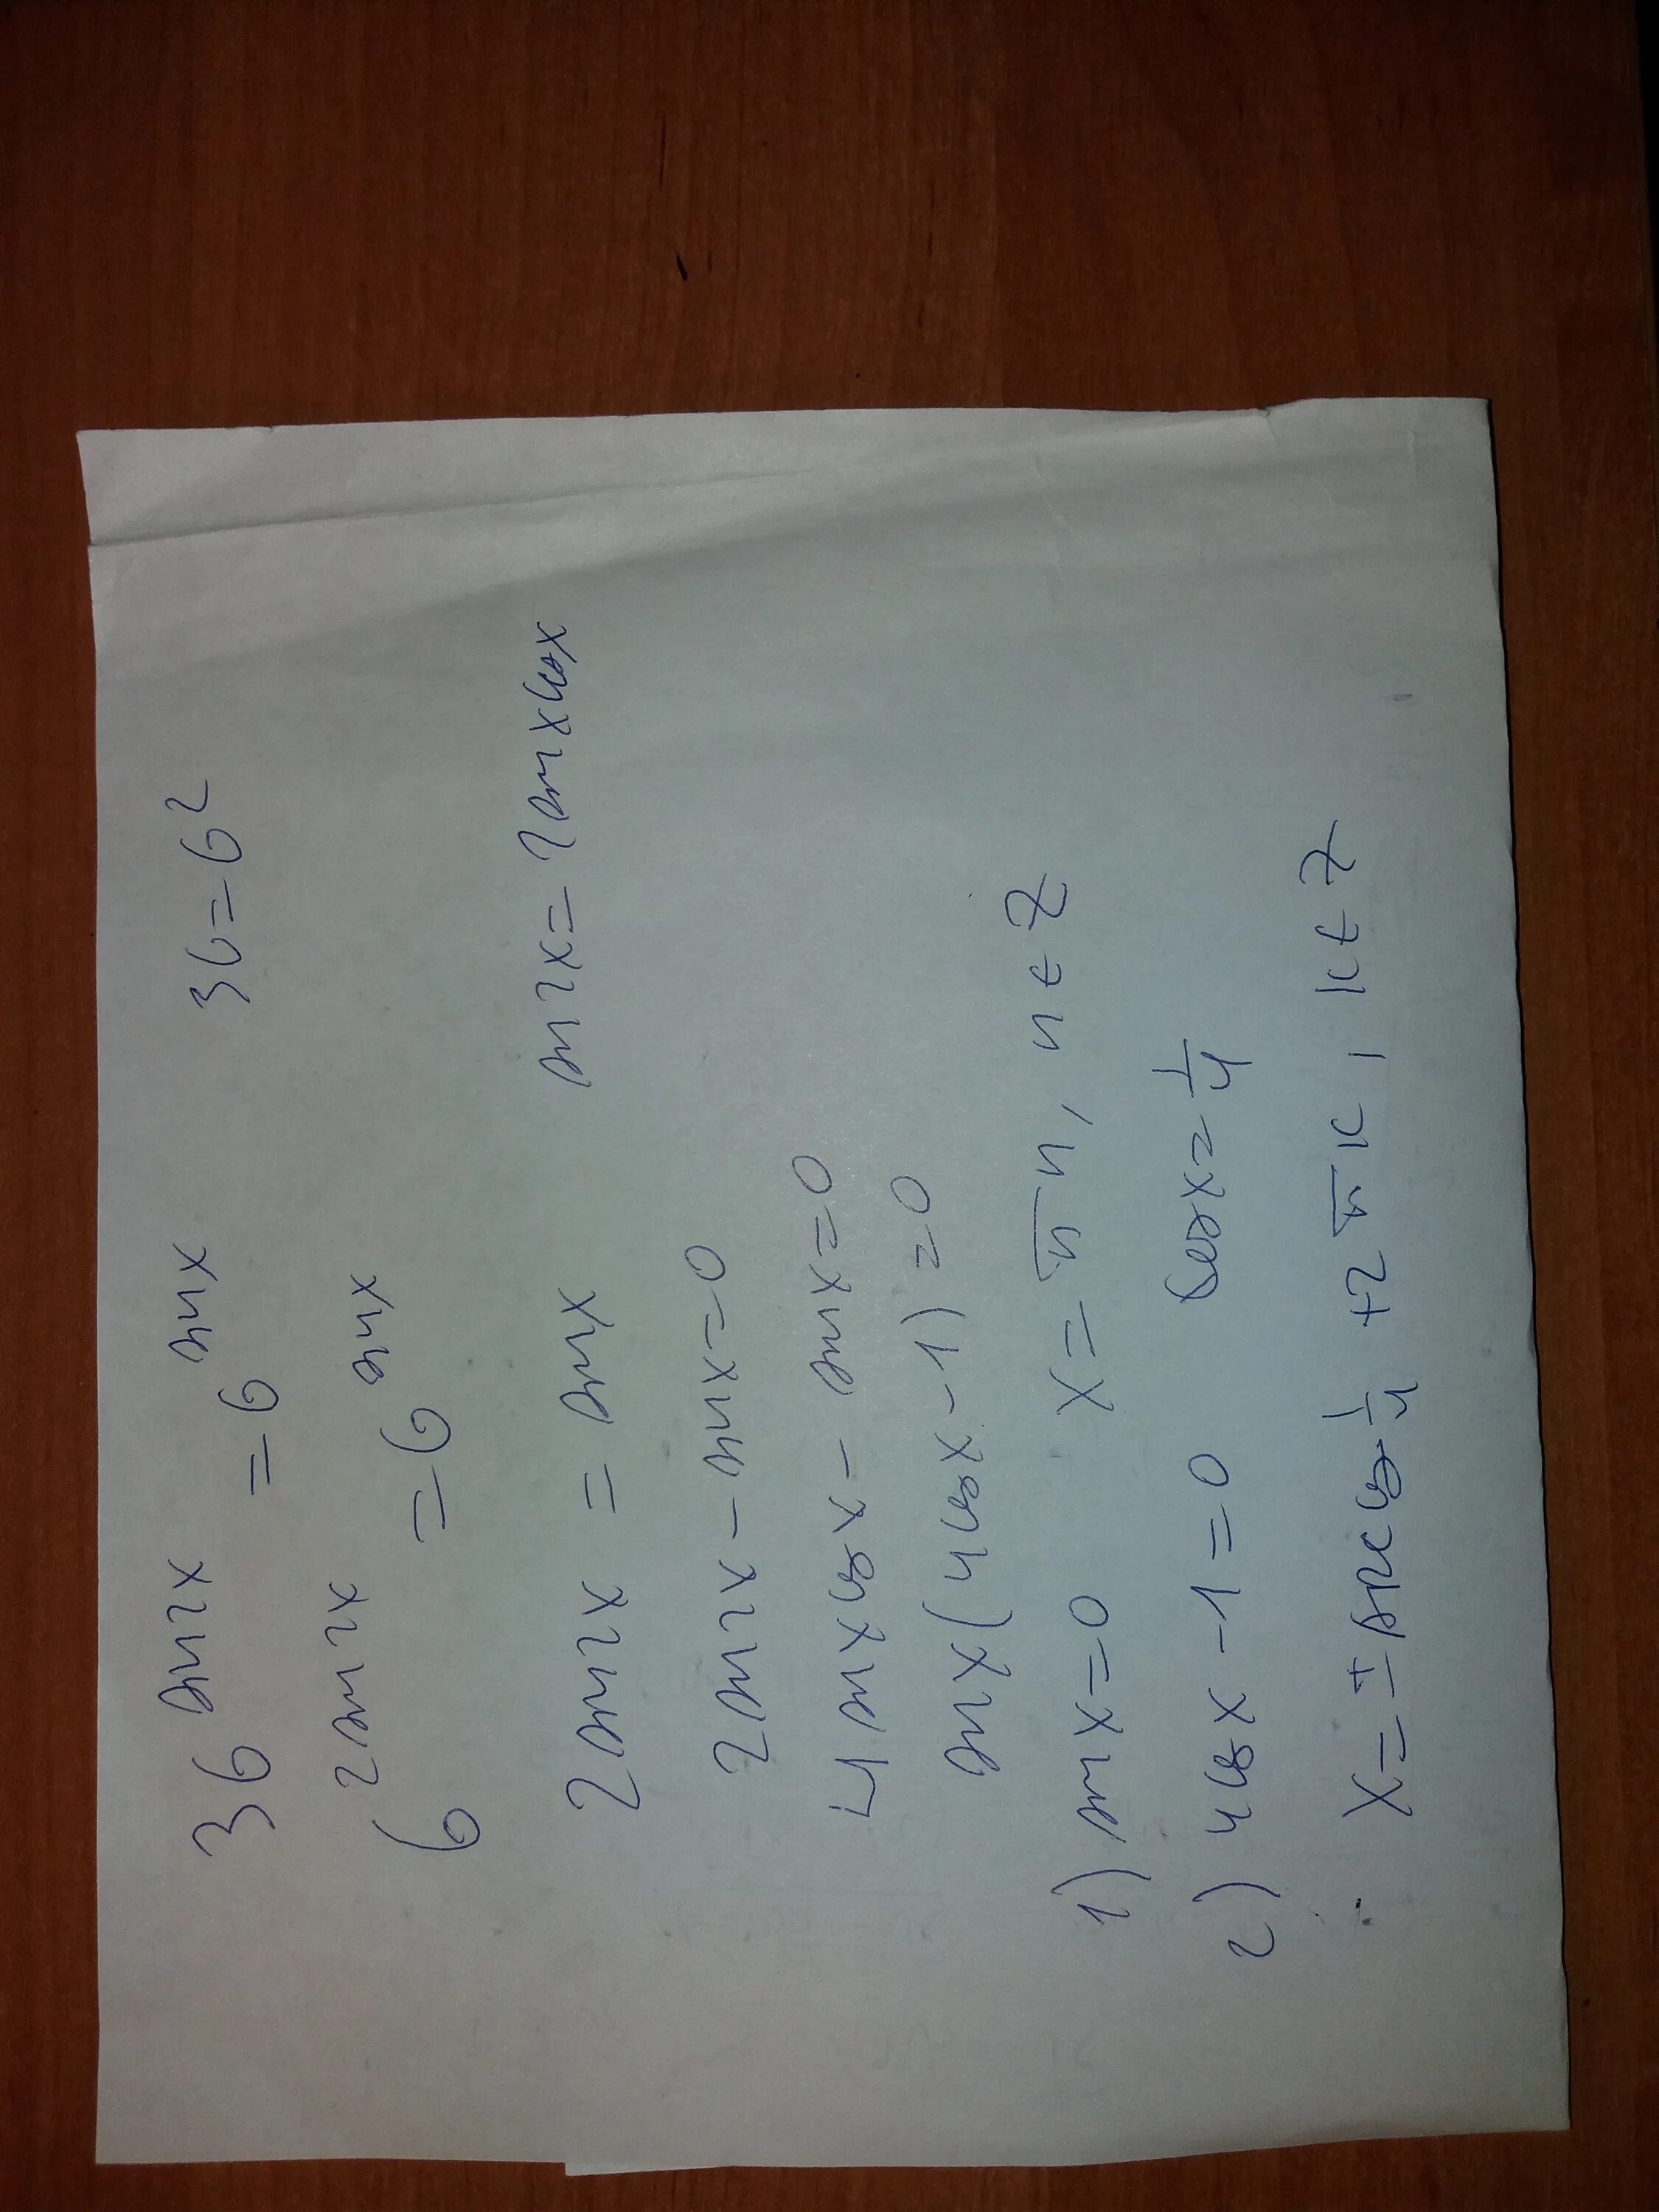 36^(sin2x) = 6^(sinx) 36=6²
6^(2sin2x) = 6^(sinx)
2sin2x = sinx sin2x=2sinxcosx
2sin2x - sinx=0
4sinxcosx - sinx=0
sinx(4cosx-1)=0
1) sinx=0 x=πn, n∈Z
2) 4cosx-1=0 cosx=1/4
x=±arccos 1/4 +2πk, k∈Z